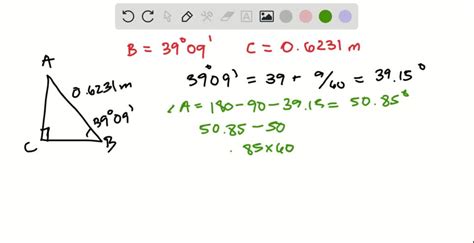 B = 39°09' C = 0.6231 m
A
0.6231 m
39°09'
C
B
39°09' = 39 + 9/60 = 39.15°
∠A = 180-90-39.15 = 50.85°
50.85-50
.85×60